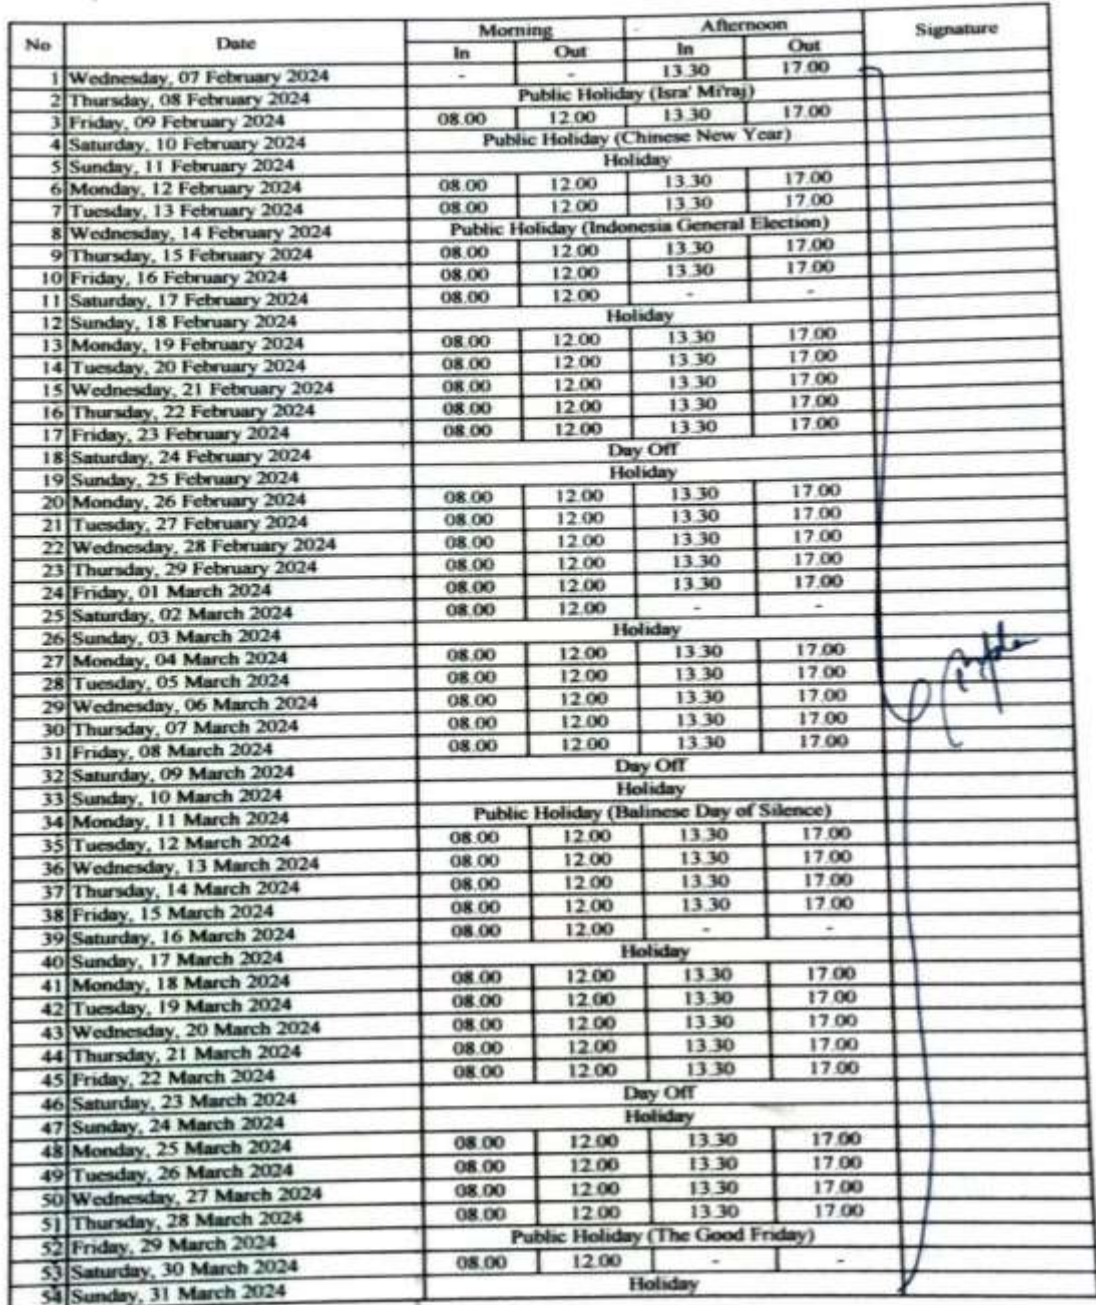 No Date Morning Afternoon Signature
In Out In Out
1 Wednesday, 07 February 2024 - - 13.30 17.00
2 Thursday, 08 February 2024 Public Holiday (Isra' Mi'raj)
3 Friday, 09 February 2024 08.00 12.00 13.30 17.00
4 Saturday, 10 February 2024 Public Holiday (Chinese New Year)
5 Sunday, 11 February 2024 Holiday
6 Monday, 12 February 2024 08.00 12.00 13.30 17.00
7 Tuesday, 13 February 2024 08.00 12.00 13.30 17.00
8 Wednesday, 14 February 2024 Public Holiday (Indonesia General Election)
9 Thursday, 15 February 2024 08.00 12.00 13.30 17.00
10 Friday, 16 February 2024 08.00 12.00 13.30 17.00
11 Saturday, 17 February 2024 08.00 12.00 - -
12 Sunday, 18 February 2024 Holiday
13 Monday, 19 February 2024 08.00 12.00 13.30 17.00
14 Tuesday, 20 February 2024 08.00 12.00 13.30 17.00
15 Wednesday, 21 February 2024 08.00 12.00 13.30 17.00
16 Thursday, 22 February 2024 08.00 12.00 13.30 17.00
17 Friday, 23 February 2024 08.00 12.00 13.30 17.00
18 Saturday, 24 February 2024 Day Off
19 Sunday, 25 February 2024 Holiday
20 Monday, 26 February 2024 08.00 12.00 13.30 17.00
21 Tuesday, 27 February 2024 08.00 12.00 13.30 17.00
22 Wednesday, 28 February 2024 08.00 12.00 13.30 17.00
23 Thursday, 29 February 2024 08.00 12.00 13.30 17.00
24 Friday, 01 March 2024 08.00 12.00 13.30 17.00
25 Saturday, 02 March 2024 08.00 12.00 - -
26 Sunday, 03 March 2024 Holiday
27 Monday, 04 March 2024 08.00 12.00 13.30 17.00
28 Tuesday, 05 March 2024 08.00 12.00 13.30 17.00
29 Wednesday, 06 March 2024 08.00 12.00 13.30 17.00
30 Thursday, 07 March 2024 08.00 12.00 13.30 17.00
31 Friday, 08 March 2024 08.00 12.00 13.30 17.00
32 Saturday, 09 March 2024 Day Off
33 Sunday, 10 March 2024 Holiday
34 Monday, 11 March 2024 Public Holiday (Balinese Day of Silence)
35 Tuesday, 12 March 2024 08.00 12.00 13.30 17.00
36 Wednesday, 13 March 2024 08.00 12.00 13.30 17.00
37 Thursday, 14 March 2024 08.00 12.00 13.30 17.00
38 Friday, 15 March 2024 08.00 12.00 13.30 17.00
39 Saturday, 16 March 2024 08.00 12.00 - -
40 Sunday, 17 March 2024 Holiday
41 Monday, 18 March 2024 08.00 12.00 13.30 17.00
42 Tuesday, 19 March 2024 08.00 12.00 13.30 17.00
43 Wednesday, 20 March 2024 08.00 12.00 13.30 17.00
44 Thursday, 21 March 2024 08.00 12.00 13.30 17.00
45 Friday, 22 March 2024 08.00 12.00 13.30 17.00
46 Saturday, 23 March 2024 Day Off
47 Sunday, 24 March 2024 Holiday
48 Monday, 25 March 2024 08.00 12.00 13.30 17.00
49 Tuesday, 26 March 2024 08.00 12.00 13.30 17.00
50 Wednesday, 27 March 2024 08.00 12.00 13.30 17.00
51 Thursday, 28 March 2024 08.00 12.00 13.30 17.00
52 Friday, 29 March 2024 Public Holiday (The Good Friday)
53 Saturday, 30 March 2024 08.00 12.00 - -
54 Sunday, 31 March 2024 Holiday